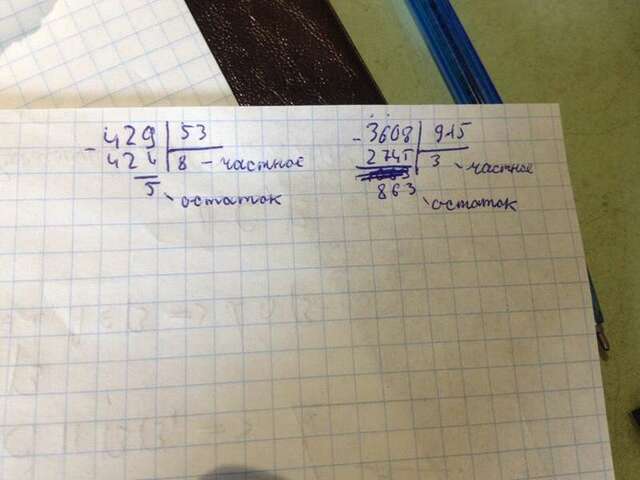 - 429 | 53
424 | 8 - частное
5 - остаток
- 3608 | 915
2745 | 3 - частное
863 - остаток